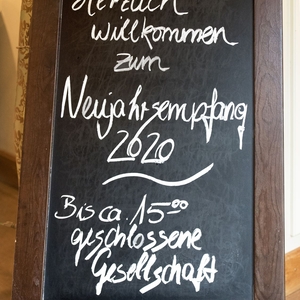 Herzlich
willkommen
zum
Neujahrsempfang
2020
Bis ca. 15⁰⁰
geschlossene
Gesellschaft